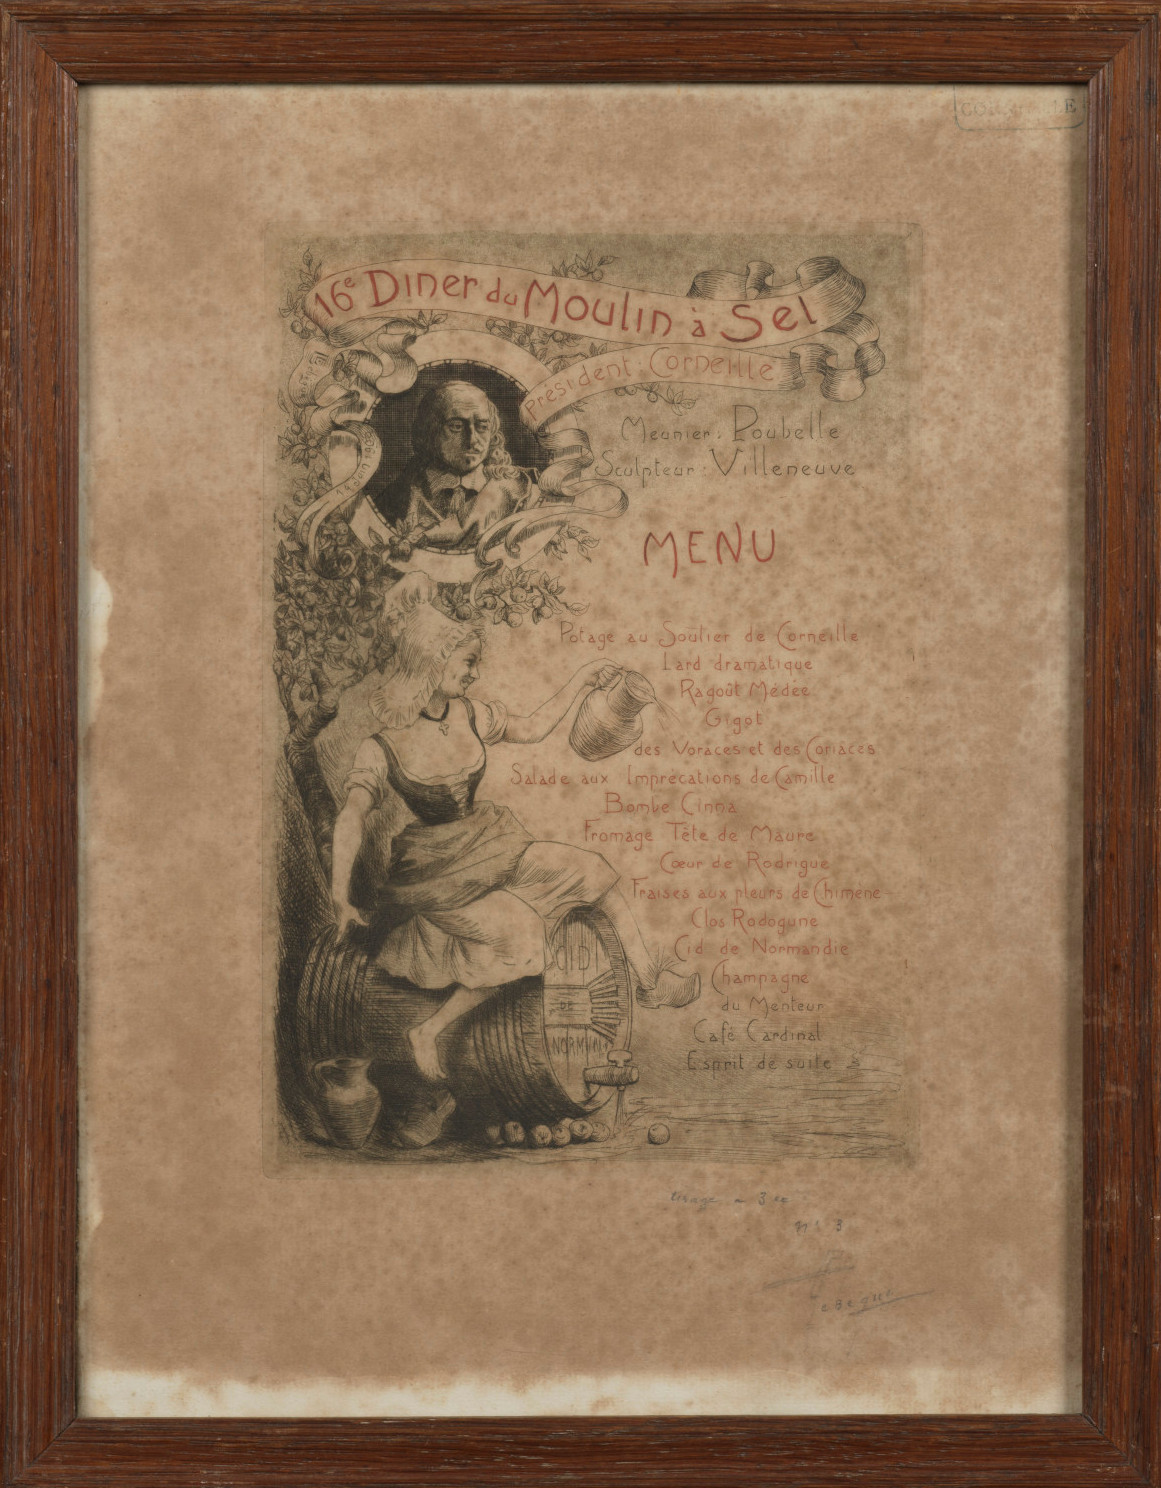 16e Diner du Moulin à Sel
Président : Corneille
14 Juin 1892
Meunier : Poubelle
Sculpteur : Villeneuve
MENU
Potage au Soulier de Corneille
Lard dramatique
Ragoût Médée
Gigot
des Voraces et des Coriaces
Salade aux Imprécations de Camille
Bombe Cinna
Fromage Tête de Maure
Cœur de Rodrigue
Fraises aux pleurs de Chimène
Clos Rodogune
Cid de Normandie
Champagne
du Menteur
Café Cardinal
Esprit de suite
CIDI
DE
NORM
3
No 3